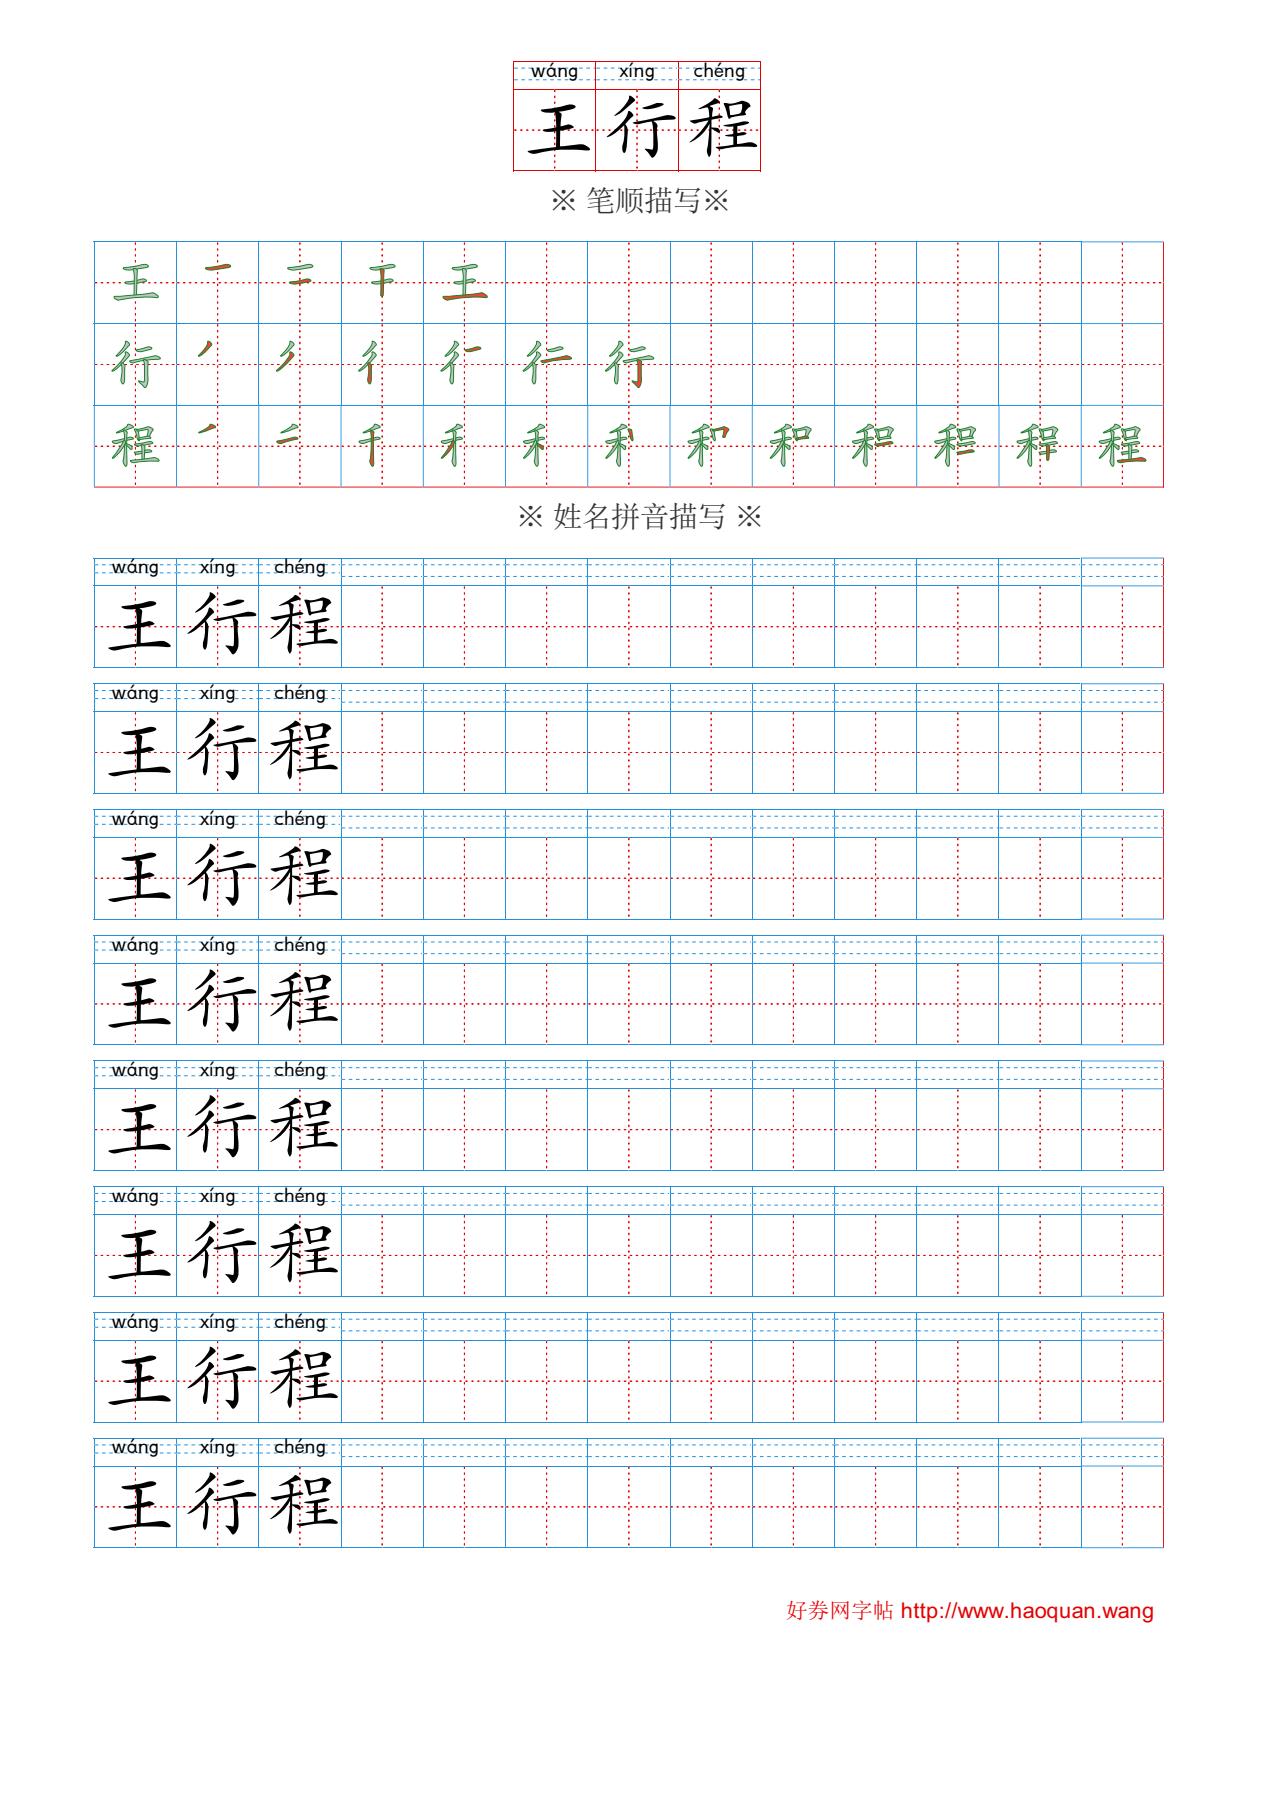 wáng xíng chéng
王 行 程
※ 笔顺描写※
王
行
程
※ 姓名拼音描写 ※
wáng xíng chéng
王 行 程
wáng xíng chéng
王 行 程
wáng xíng chéng
王 行 程
wáng xíng chéng
王 行 程
wáng xíng chéng
王 行 程
wáng xíng chéng
王 行 程
wáng xíng chéng
王 行 程
wáng xíng chéng
王 行 程
好券网字帖 http://www.haoquan.wang